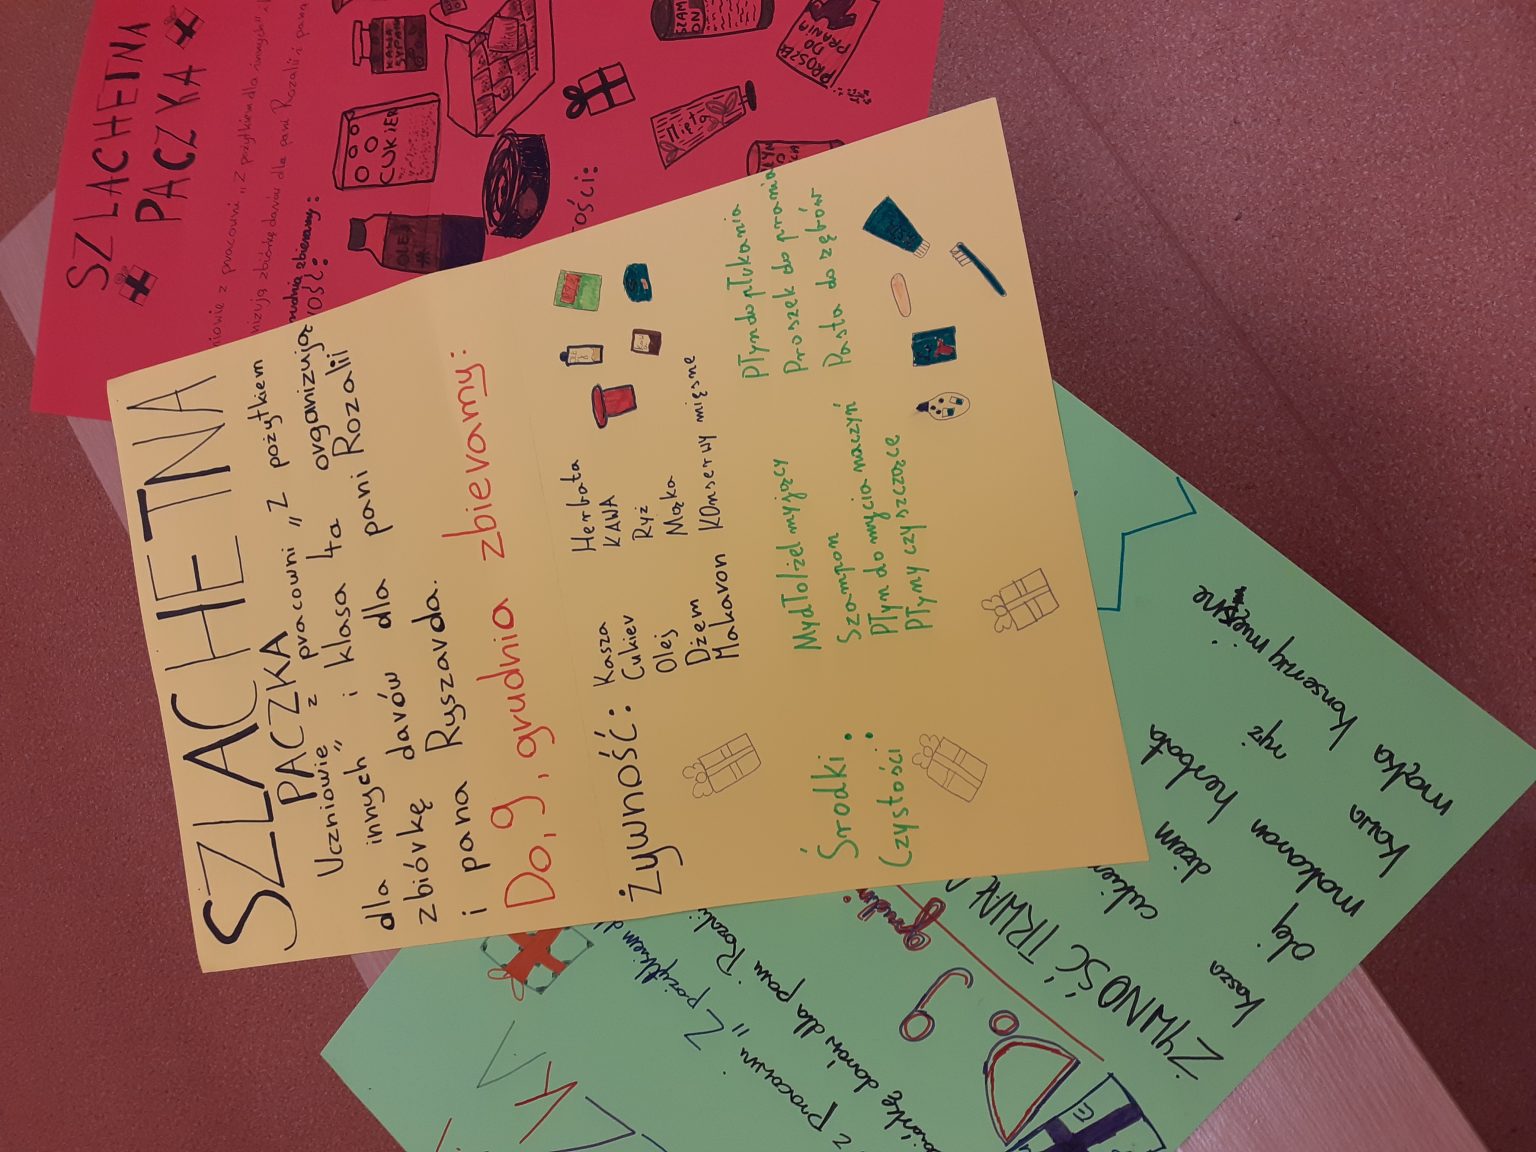 SZLACHETNA
PACZKA
Uczniowie z pracowni „Z pożytkiem
dla innych" i klasa 4a organizują
zbiórkę darów dla pani Rozalii
i pana Ryszarda.
Do, 9, grudnia zbieramy:
Żywność:
Kasza
Cukier
Olej
Dżem
Makaron
Herbata
KAWA
Ryż
Mąka
Konserwy mięsne
Środki
Czystości:
Mydło/żel myjący
Szampon
Płyn do mycia naczyń
Płyny czyszczące
Płyn do płukania
Proszek do prania
Pasta do zębów
SZLACHETNA
PACZKA
z pracowni „Z pożytkiem dla innych"
zbiórkę darów dla pani Rozalii i pana
zbieramy:
KAWA
SYPANA
CUKIER
OLEJ
SZAM
PON
PROSZEK
DO
PRANIA
Mięta
ości:
KA
z pracowni „Z pożytkiem
darów dla pani Rozali
Do 9
ŻYWNOŚĆ TRWAŁ
kasza
cukier
olej
dżem
makaron
herbata
kawa
ryż
mąka
konserwy mięsne